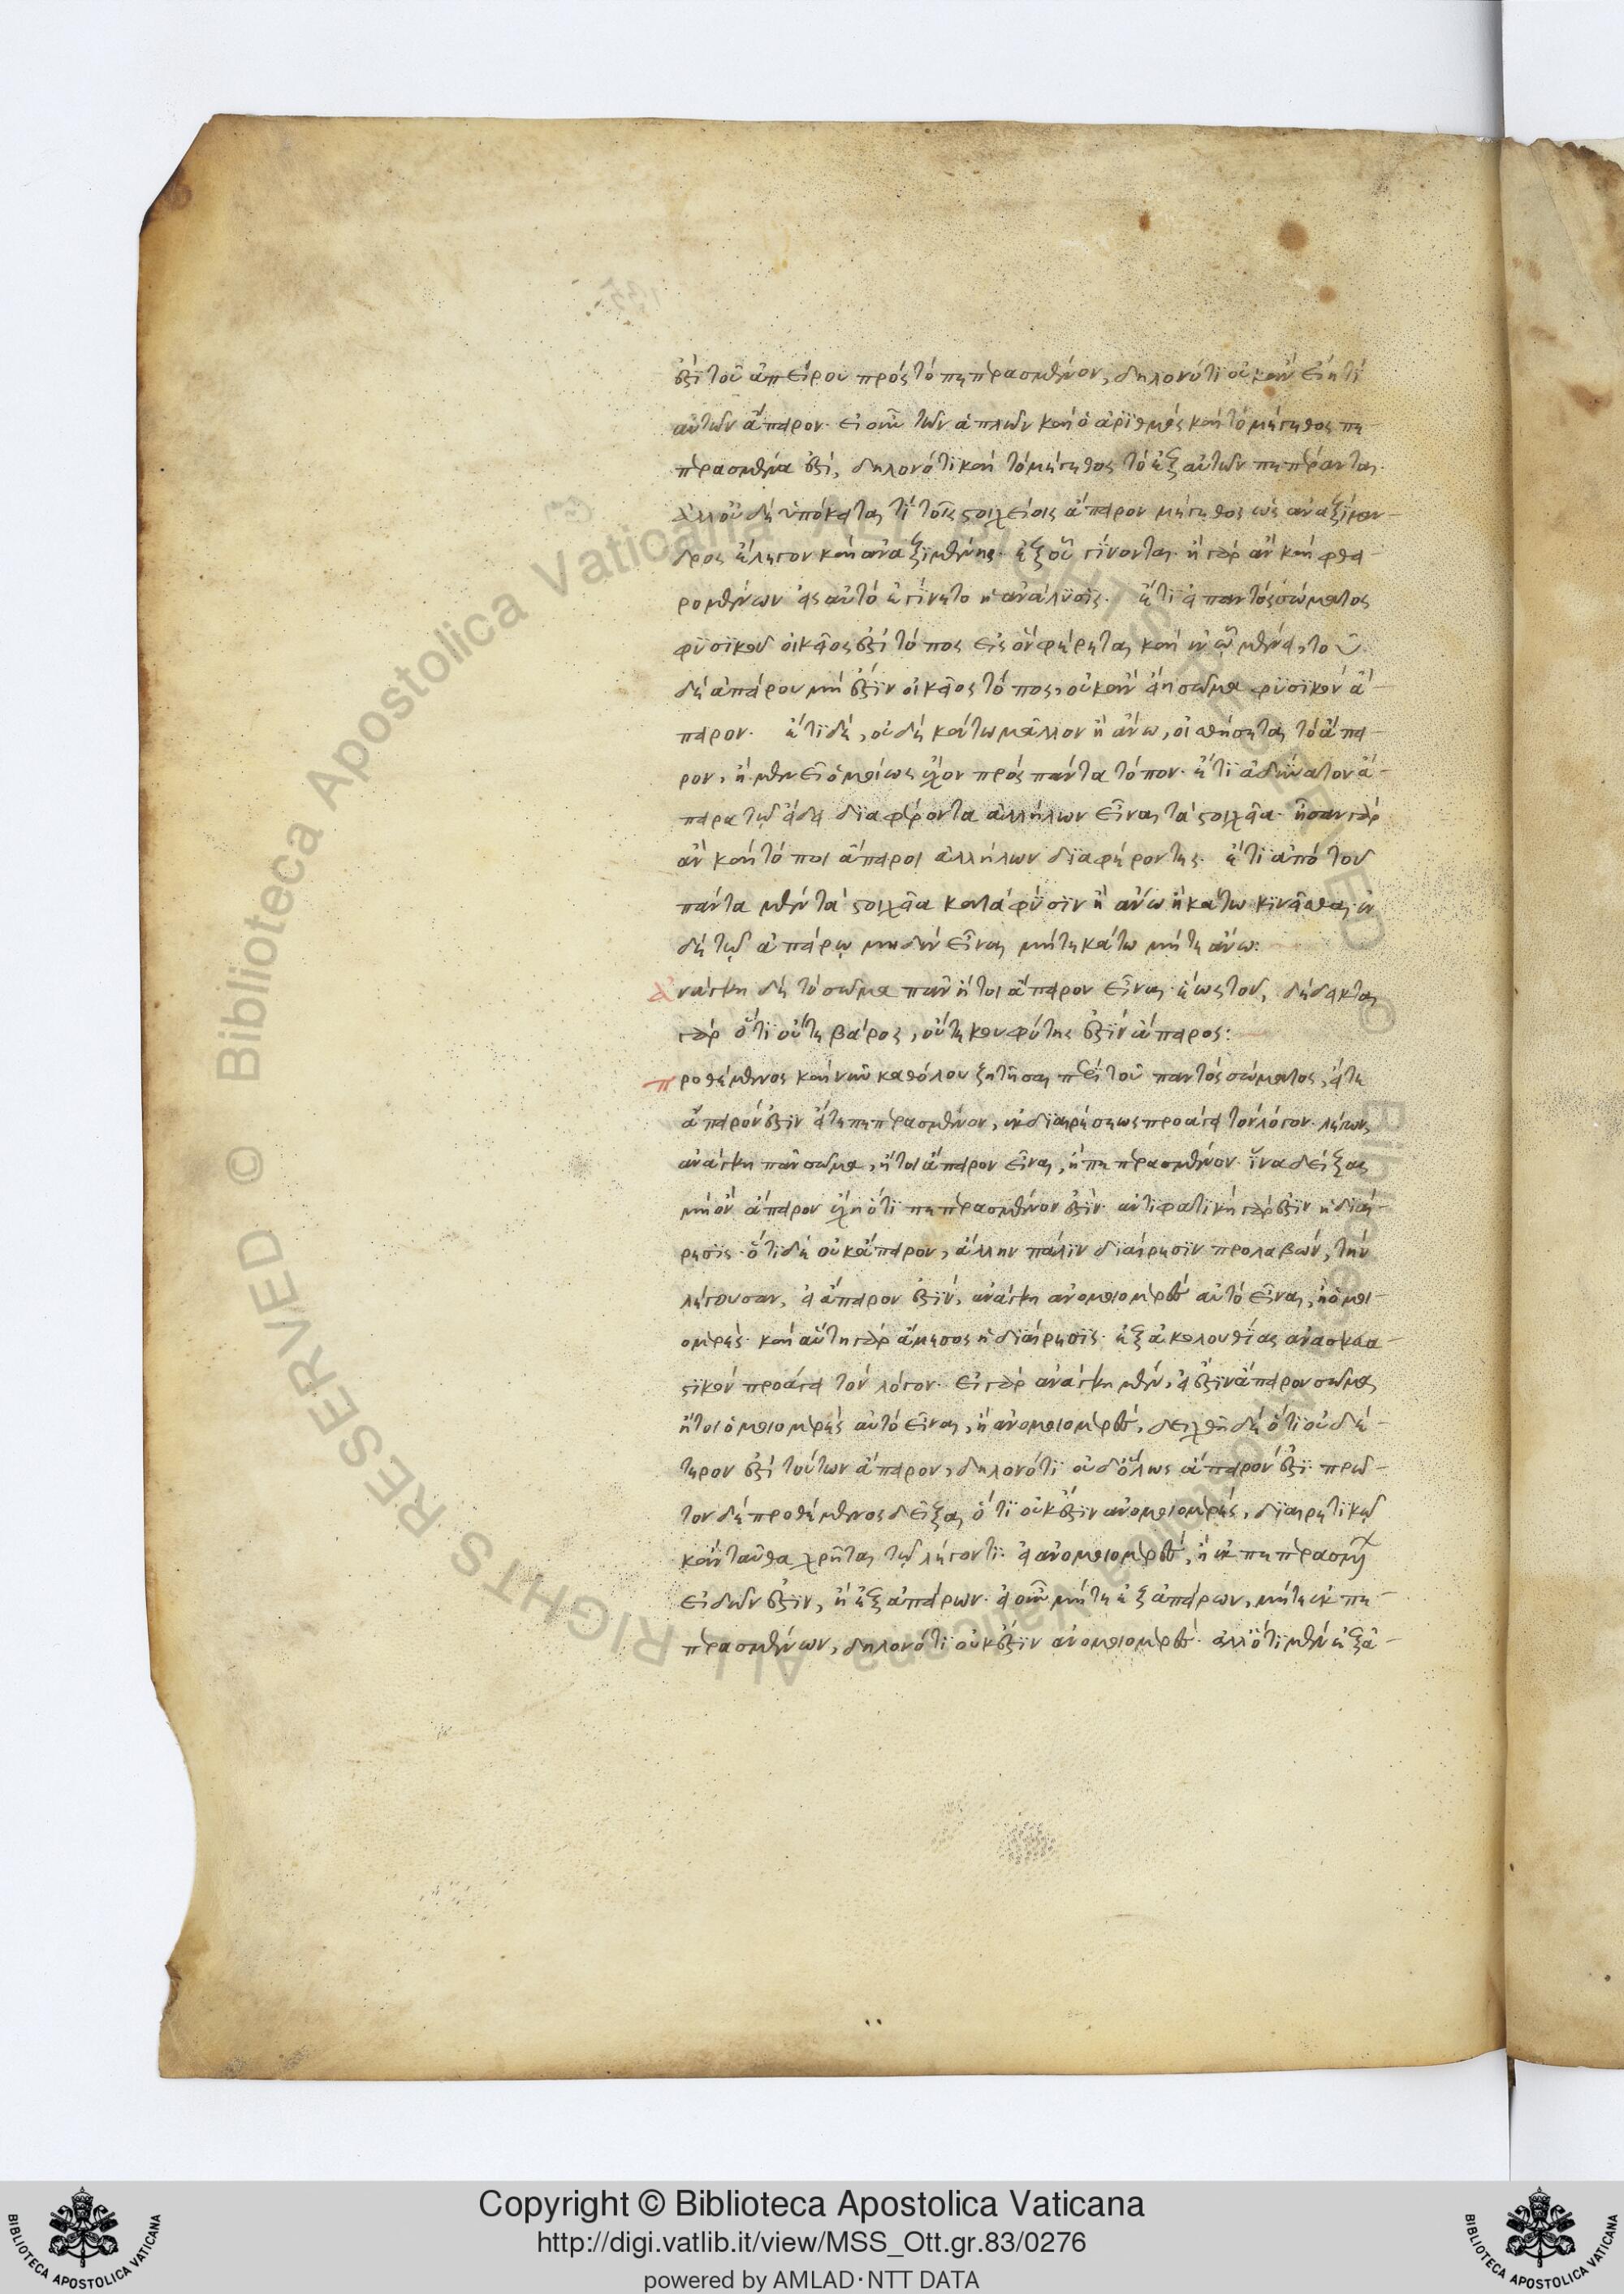 ἐστὶ τοῦ ἀπείρου πρὸς τὸ πεπερασμένον, δηλονότι οὐκ ἂν εἴη τί
αὐτῶν ἄπειρον. εἰ οὖν τῶν ἁπλῶν καὶ ὁ ἀριθμὸς καὶ τὸ μέγεθος πε-
περασμένα ἐστί, δηλονότι καὶ τὸ μέγεθος τὸ ἐξ αὐτῶν πεπέρανται.
ἀλλ οὐδὲ ὑπόκειται τί τοῖς στοιχείοις ἄπειρον μέγεθος ὡς ἀναξίμαν-
δρος ἔλεγον καὶ ἀναξιμένης. ἐξ οὗ γίνονται. ἢ γὰρ ἂν καὶ φθει-
ρομένων εἰς αὐτὸ ἐγίνετο ἡ ἀνάλυσις. ἔτι εἰ παντὸς σώματος
φυσικοῦ οἰκεῖος ἐστὶ τόπος εἰς ὃν φέρεται καὶ ἐν ᾧ μένει, τοῦ
δὲ ἀπείρου μή ἐστιν οἰκεῖος τόπος, οὐκ ἂν εἴη σῶμα φυσικὸν ἄ-
πειρον. ἔτι δὲ, οὐδὲ κάτω μᾶλλον ἢ ἄνω, οἰσθήσεται τὸ ἄπει-
ρον, ἢ μενεῖ ὁμοίως ἔχον πρὸς πάντα τόπον. ἔτι ἀδύνατον ἄ-
πειρα τῷ εἴδει διαφέροντα ἀλλήλων εἶναι τὰ στοιχεῖα. ἦσαν γὰρ
ἂν καὶ τόποι ἄπειροι ἀλλήλων διαφέροντες. ἔτι ἀπὸ τοῦ
πάντα μὲν τὰ στοιχεῖα κατὰ φύσιν ἢ ἄνω ἢ κάτω κινεῖσθαι, ἐν
δὲ τῷ ἀπείρῳ μηδὲν εἶναι μήτε κάτω μήτε ἄνω:
ἀνάγκη δὲ τὸ σῶμα πᾶν ἤτοι ἄπειρον εἶναι. ἕως τοῦ, δέδεικται
γὰρ ὅτι οὔτε βάρος, οὔτε κουφότης ἐστὶν ἄπειρος:
προθέμενος καὶ νῦν καθόλου ζητῆσαι περὶ τοῦ παντὸς σώματος, εἴτε
ἄπειρόν ἐστιν εἴτε πεπερασμένον, ἐκ διαιρέσεως προάγει τὸν λόγον. λέγων,
ἀνάγκη πᾶν σῶμα, ἤτοι ἄπειρον εἶναι, ἢ πεπερασμένον. ἵνα δείξας
μὴ ὂν ἄπειρον ἔχῃ ὅτι πεπερασμένον ἐστίν. ἀντιφατικὴ γὰρ ἐστὶν ἡ διαί-
ρεσις. ὅτι δὲ οὐκ ἄπειρον, ἄλλην πάλιν διαίρεσιν προλαβών, τὴν
λέγουσαν, εἰ ἄπειρον ἐστίν, ἀνάγκη ἀνομοιομερὲς αὐτὸ εἶναι, ἢ ὁμοι-
ομερές. καὶ αὕτη γὰρ ἄμεσος ἡ διαίρεσις. ἐξ ἀκολουθίας ἀνασκευα-
στικὸν προάγει τὸν λόγον. εἰ γὰρ ἀνάγκη μὲν, εἰ ἔστιν ἄπειρον σῶμα,
ἤτοι ὁμοιομερὲς αὐτὸ εἶναι, ἢ ἀνομοιομερές, δειχθῇ δὲ ὅτι οὐδέ-
τερον ἐστὶ τούτων ἄπειρον, δηλονότι οὐδ ὅλως ἄπειρόν ἐστι. πρῶ-
τον δὲ προθέμενος δεῖξαι ὅτι οὐκ ἔστιν ἀνομοιομερές, διαιρετικῷ
κἀνταῦθα χρῆται τῷ λέγοντι. εἰ ἀνομοιομερές, ἢ ἐκ πεπερασμένων
εἰδῶν ἐστίν, ἢ ἐξ ἀπείρων. εἰ οὖν μήτε ἐξ ἀπείρων, μήτε ἐκ πε-
περασμένων, δηλονότι οὐκ ἔστιν ἀνομοιομερές. ἀλλ ὅτι μὲν ἐξ ἀ-
Copyright © Biblioteca Apostolica Vaticana
http://digi.vatlib.it/view/MSS_Ott.gr.83/0276
powered by AMLAD·NTT DATA